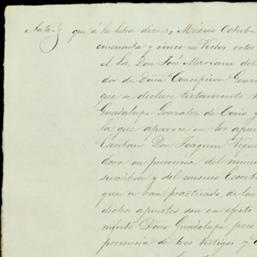 Auto. que á la letra dice: México Octubre
cincuenta y cinco = Vistos estos
Lic. Don José Mariano del
dor de Doña Concepcion Gonz
que se declare testamento
Guadalupe Gonzalez de Cosio y
la que aparece en los apun
Escribano Don Joaquin Vigue
dosa en presencia del mismo
suscribian y del mismo Escrib
que se han practicado, de las
dichos apuntes son en efecto
misma Doña Guadalupe pero
presencia de tres testigos y